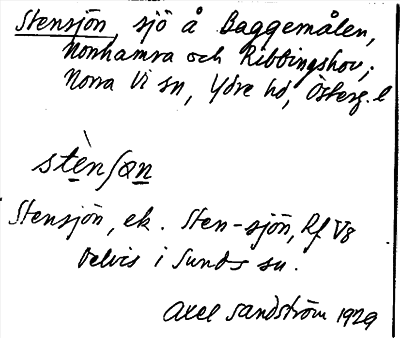 Stensjön, sjö å Baggemålen,
Norrhamra och Ribbingshov,
Norra Vi sn, Ydre hd, Österg. l
stènʃøn
Stensjön, ek. Sten-sjön, Rf V8
Delvis i Sunds sn.
Axel Sandström 1929